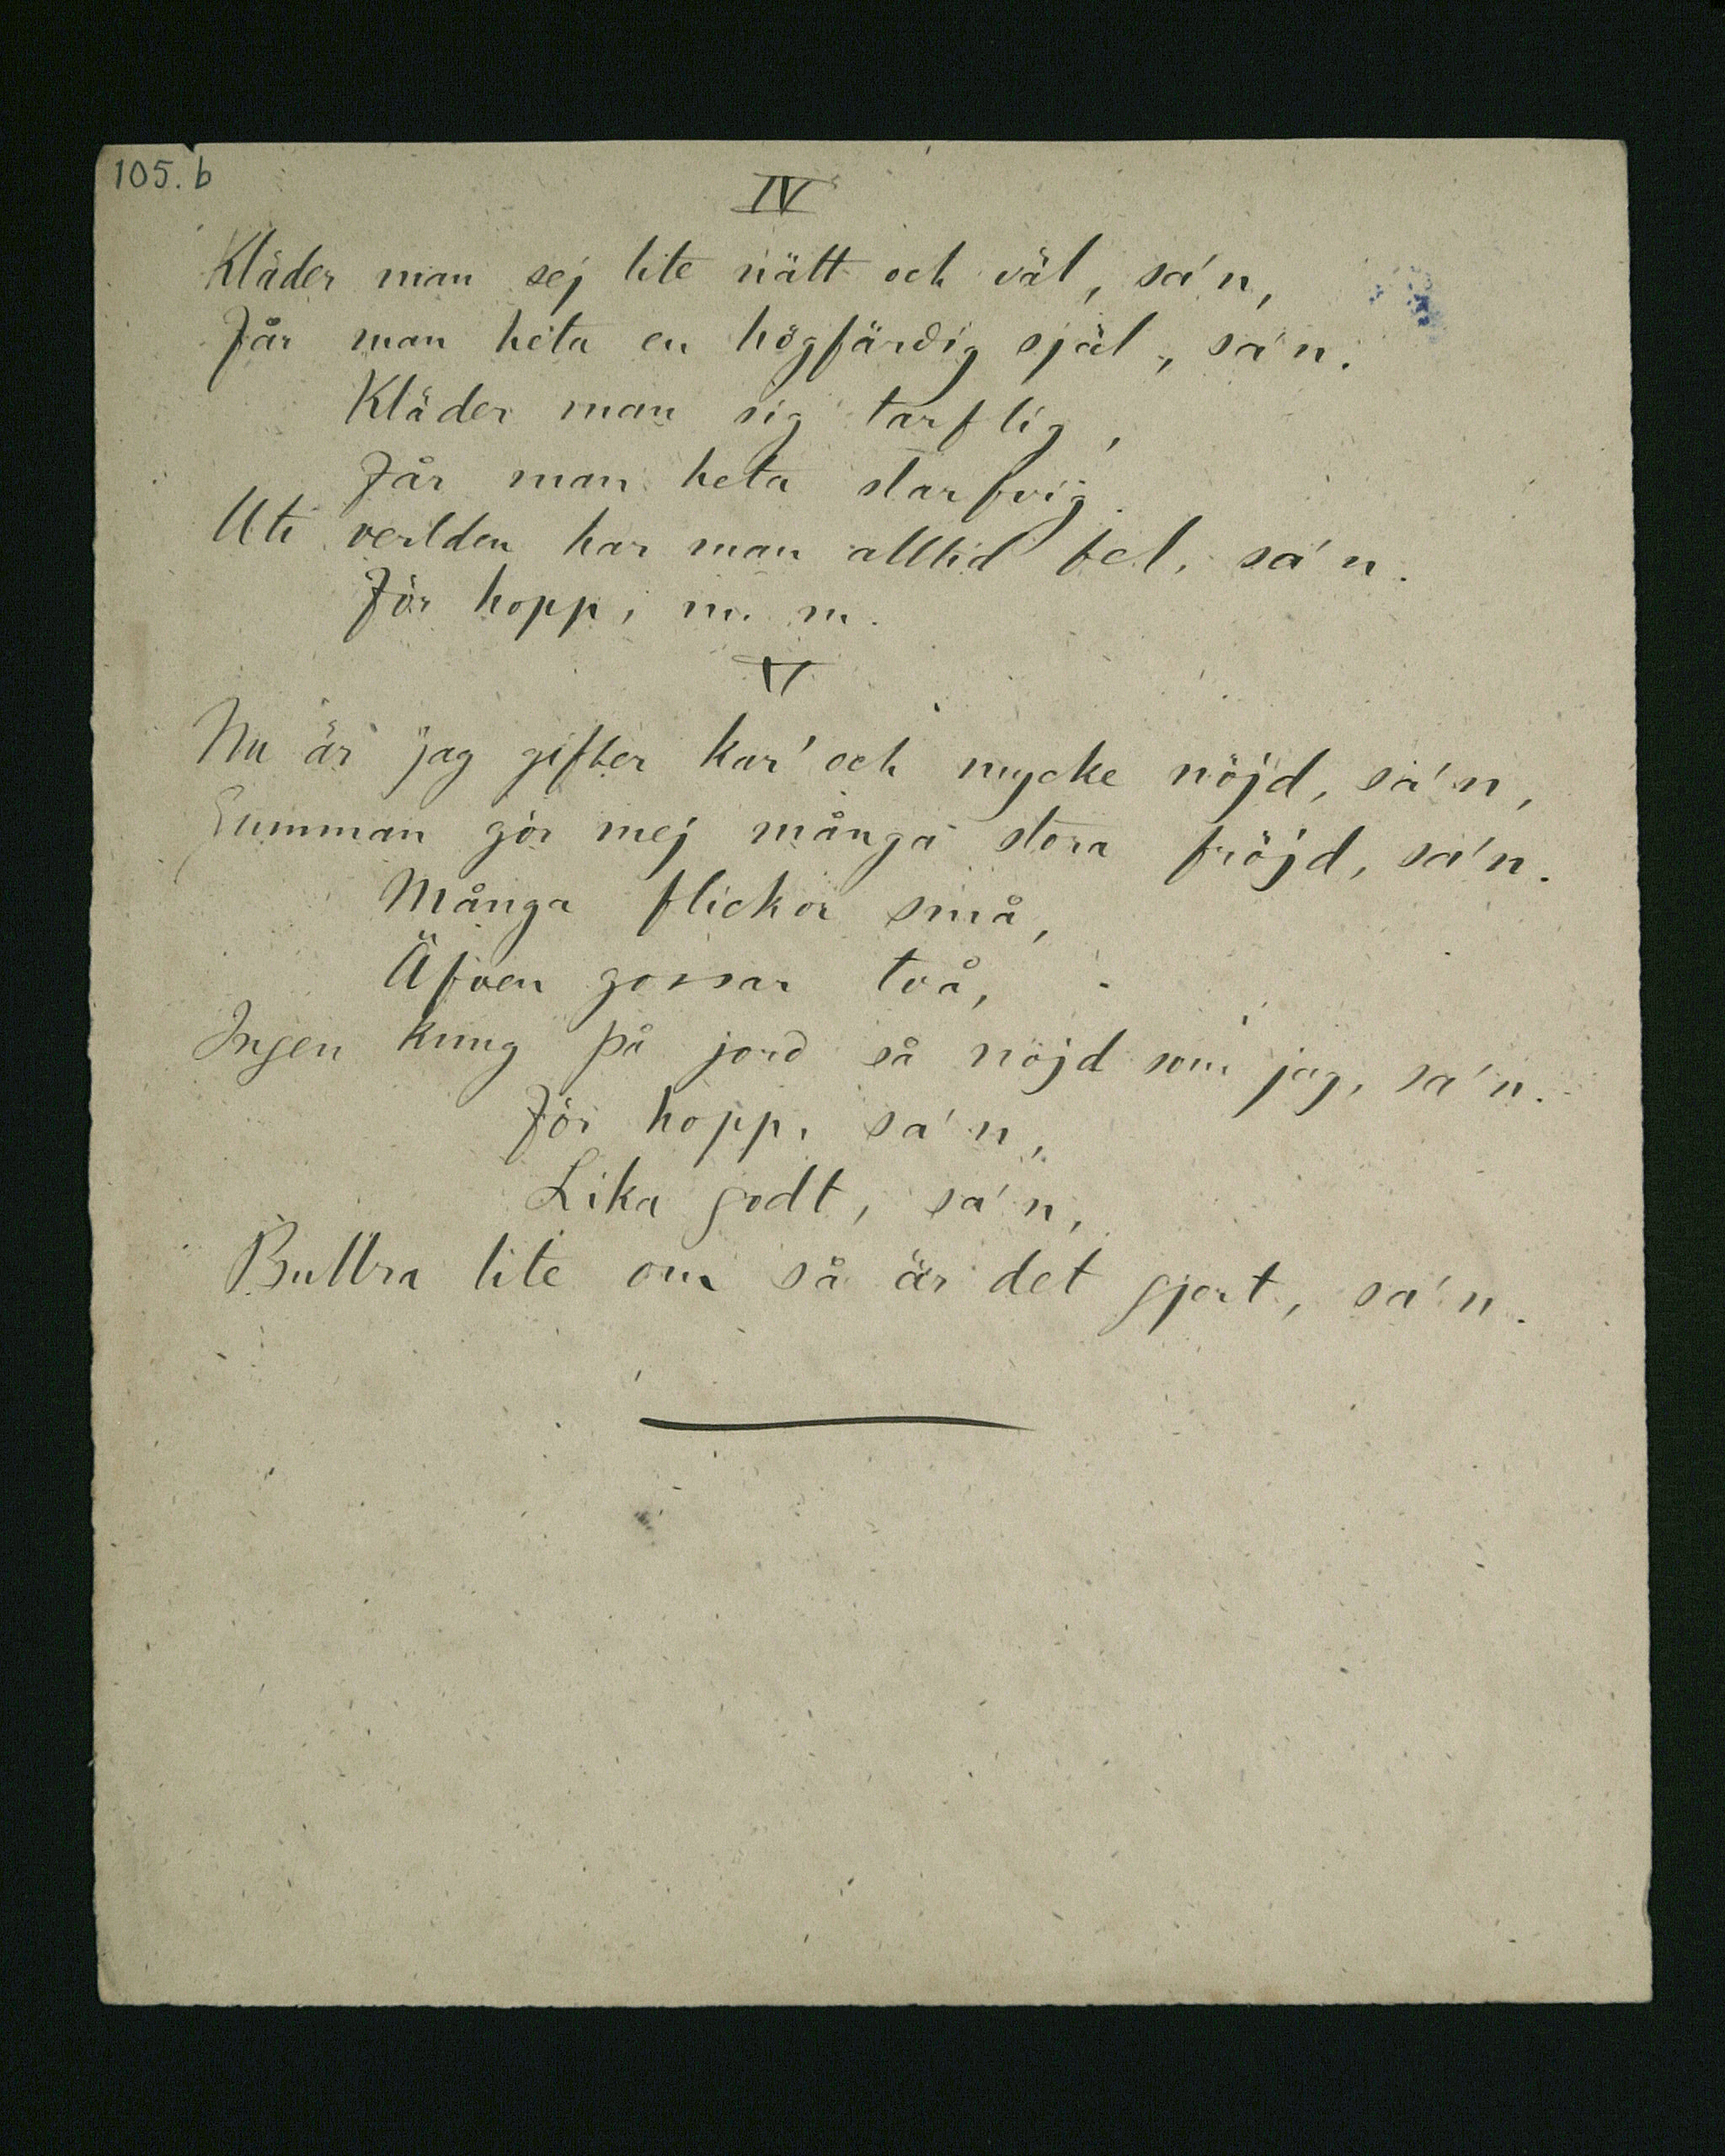 105.b
IV
Kläder man sej lite nätt och väl, sa'n,
Får man heta en högfärdig själ, sa'n.
Kläder man sig tarflig,
Får man heta slarfvig.
Uti verlden har man alltid fel, sa'n.
För hopp, m. m.
V
Nu är jag gifter kar' och mycke nöjd, sa'n,
Gumman gör mej många stora fröjd, sa'n.
Många flickor små,
Äfven gossar två,
Ingen kung på jord så nöjd som jag, sa'n.
För hopp, sa'n,
Lika godt, sa'n,
Bullra lite om så är det gjort, sa'n.